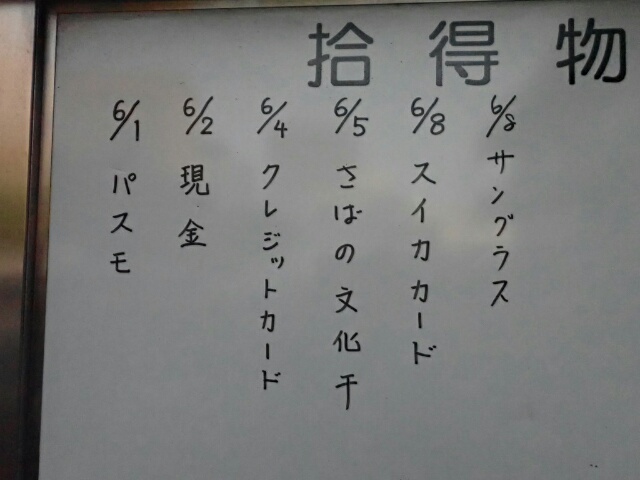 拾得物
6/8 サングラス
6/8 スイカカード
6/5 さばの文化干
6/4 クレジットカード
6/2 現金
6/1 パスモ